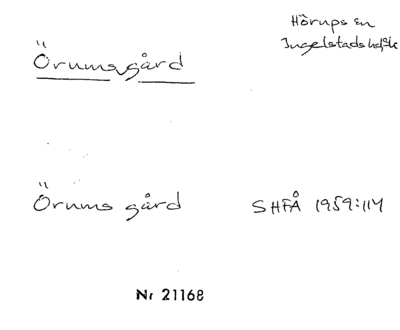 Hörups sn
Ingelstads hd Sk
Örumsgård
Örums gård SHFÅ 1959:114
Nr 21168